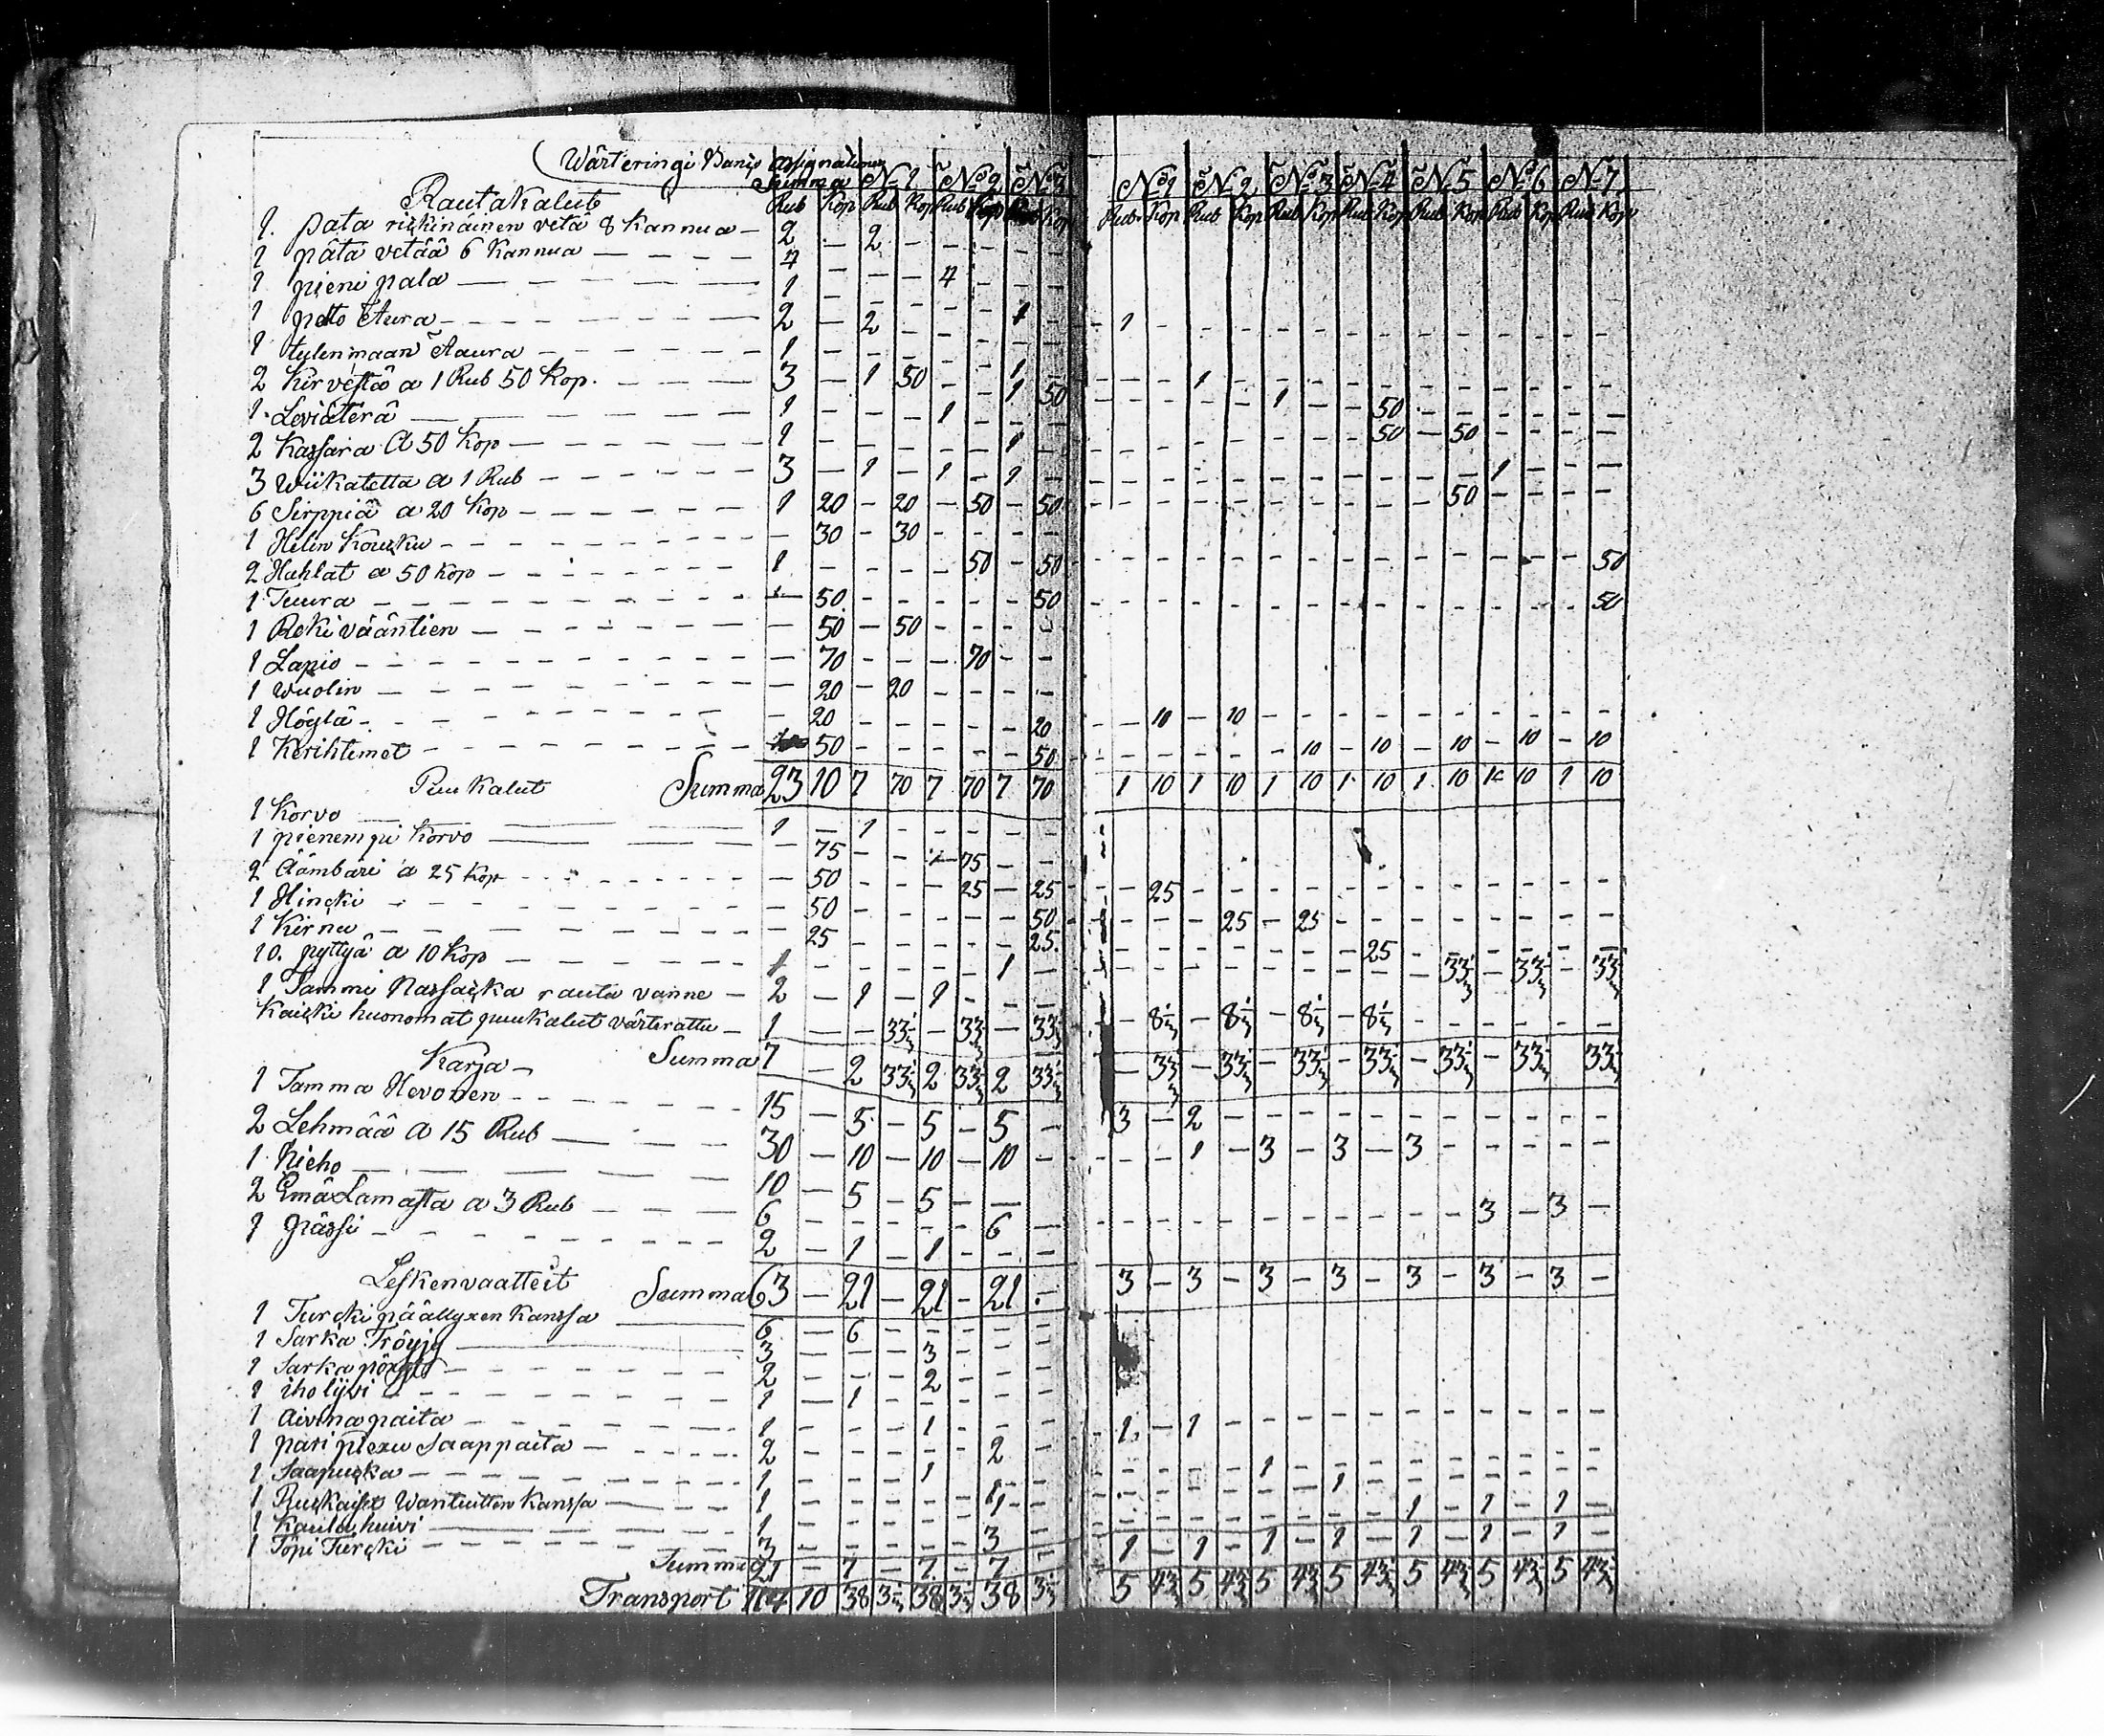 Wärteringi Banco assignationes
Summa N:1 N:o 2 N:o 3 N:o 1 N:2 N:o 3 N:4 N:5 N:o 6 N:7
Rautakalut Rub Kop Rub Kop Rub Kop Rub Kop Rub Kop Rub Kop Rub Kop Rub Kop Rub Kop Rub Kop Rub Kop
1. pata riskinäinen vetä 8 Kannua — 2 — 2 — — — — —
1 päta vetää 6 Kannua — — — 4 — — — 4 — — —
1 pieni pata — — 1 — — — — — 1 — — 1 —
1 pelto Aura — 2 — 2 — — — — —
1 tylenmaan Aaura — 1 — — — — — 1 — — — — 1 —
2 Kirvestä a 1 Rub 50 Kop. — 3 — 1 50 — — 1 50 — — — — 1 — — 50
1. Leviäterä — 1 — — — 1 — — —
2 Kassara a 50 Kop — 1 — — — — — 1 — — — — — — — — 50 — 50
3 Wiikatetta a 1 Rub — 3 — 1 — 1 — 1 — — — — — — — — — — — 1 —
6 Sirppiä a 20 Kop — 1 20 — 20 — 50 — 50 — — — — — — — — — 50
1 Hilin Koucku — — 30 — 30 — — — —
2 Hahlat a 50 Kop — 1 — — — — 50 — 50 — — — — — — — — — — — — — 50
1 Tuura — — 50 — — — — — 50 — — — — — — — — — — — — — 50
1 Reki vääntien — — 50 — 50 — — — —
1 Lapio — — 70 — — — 70 — —
1 Wuolin — — 20 — 20 — — — —
1 Höylä — — 20 — — — — — 20 — 10 — 10 — — — — — — — — — —
1 Kerihtimet — 50 — — — — — 50 — — — — — 10 — 10 — 10 — 10 — 10
Puukalut Summa 23 10 7 70 7 70 7 70 1 10 1 10 1 10 1 10 1 10 1 10 1 10
1 Korvo — 1 — 1 — — — — —
1 pienempi Korvo — — 75 — — — 75 — —
2 Äämbäri a 25 Kop — — 50 — — — 25 — 25 — 25 — — — — — —
1 Hincki — — 50 — — — — — 50 — — — 25 — 25 — — —
1 Kirnu — 25 — — — — — 25. — — — — — — — 25 — 33 1/3 — 33 1/3 — 33 1/3
10. pyttyä a 10 Kop — 1 — — — — — 1 —
1 Tammi Nassacka rauta vanne — 2 — 1 — 1 — — —
Kaicki huonomat puukalut värterattu — 1 — — 33 1/3 — 33 1/3 — 33 1/3 — 8 1/3 — 8 1/3 — 8 1/3 — 8 1/3 — — — — — —
Karja — Summa 7 — 2 33 1/3 2 33 1/3 2 33 1/3 — 33 1/3 — 33 1/3 — 33 1/3 — 33 1/3 — 33 1/3 — 33 1/3 — 33 1/3
1 Tamma Hevonen — 15 — 5 — 5 — 5 — 3 — 2 — — —
2 Lehmää a 15 Rub — 30 — 10 — 10 — 10 — — — 1 — 3 — 3 — 3 — — — — —
1 Hieho — 10 — 5 — 5 — — —
2 Emä Lamasta a 3 Rub — 6 — — — — — 6 — — — — — — — — — — — 3 — 3 —
1 Pässi — 2 — 1 — 1 — — —
Lesken vaatteit Summa 63 — 21 — 21 — 21 — 3 — 3 — 3 — 3 — 3 — 3 — 3 —
1 Turcki päällyxen kanssa — 6 — 6 — — — — —
1 Sarka Tröyjy — 3 — — — 3 — — —
1 Sarka — 2 — — — 2 — — —
1 iho lijvi — 1 — 1 — — — — —
1 Aivina paita — 1 — — — 1 — — — 1 — 1 — — —
1 pari Piexu Saappaita — 2 — — — — — 2 —
1 Saapucka — 1 — — — 1 — — — — — — — 1 — 1 —
1 Ruckaiset Wantuitten kanssa — 1 — — — — — 1 — — — — — — — — — 1 — 1 — 1 —
1 Kaula huivi — 1 — — — — — 1 —
1 Topi Turcki — 3 — — — — — 3 —
Summa 21 — 7 — 7 — 7 — 1 — 1 — 1 — 1 — 1 — 1 — 1 —
Transport 114 10 38 3 1/3 38 3 1/3 38 3 1/3 5 43 1/3 5 43 1/3 5 43 1/3 5 43 1/3 5 43 1/3 5 43 1/3 5 43 1/3